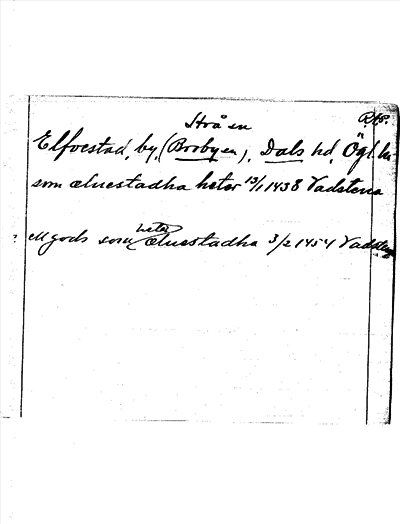 Strå sn
RAp.
Elfvestad, by, (Broby sn), Dals hd, Ögl. län
som æluestadha heter 13/1 1438 Vadstena
? ett gods som heter æluestadha 3/2 1454 Vadstena